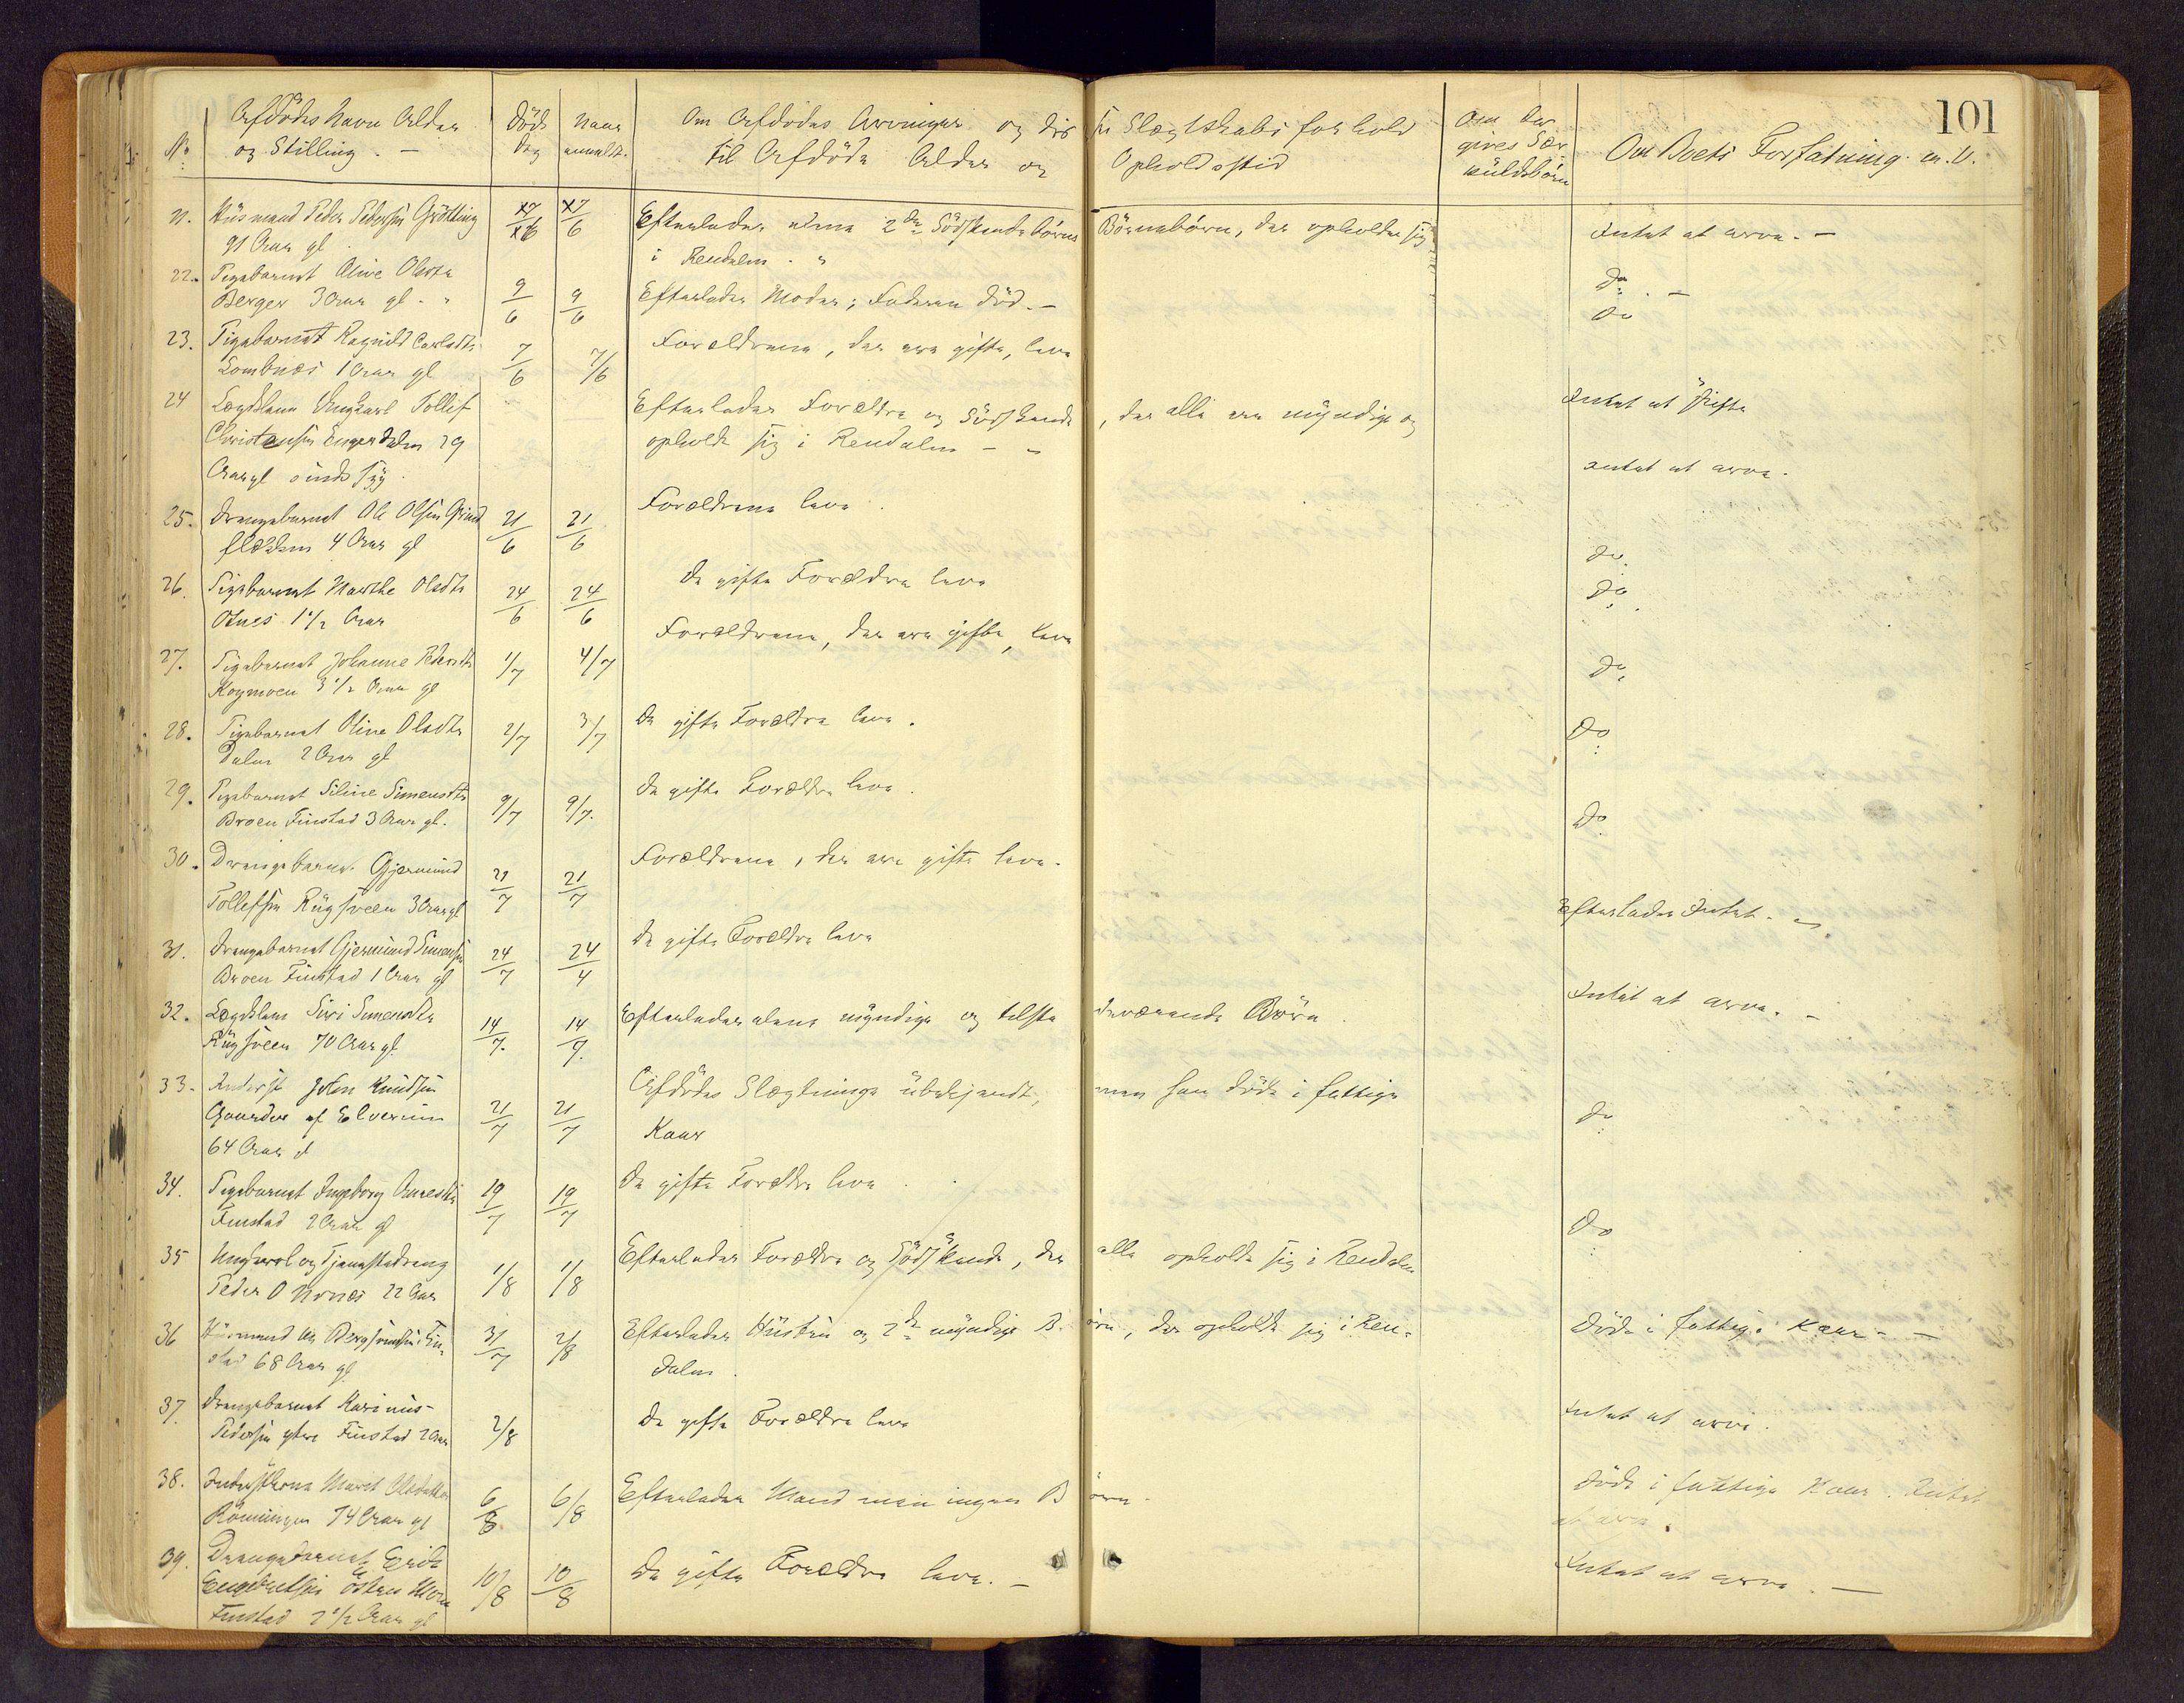 101
No Afdödes Navn Alder
og Stilling. —
Döds
dag
Naar
anmeldt.
Om Afdödes Arvinger og disses Slægtskabsforhold
til Afdöde Alder og Opholdssted
Om der
gives Sær
kuldsbörn
Om Boets Forfatning m. V.
21. Husmand Peder Pedersen Grötting 17/6 17/6 Efterlader alene 2de Södskendebörns Börnebörn, der opholder sig Intet at arve. —
91 Aar gl. i Rendalen. "
22. Pigebarnet Oline Olsdtr
Berger 3 Aar gl. " 9/6 9/6 Efterlader Moder; Faderen död. — Do. —
23. Pigebarnet Ragnild Carlsdtr 7/6 7/6 Forældrene, der ere gifte, leve Do
Lombnæs 1 Aar gl
24 Lægdslem Ungkarl Tollef Efterlader Forældre og Södskende, der alle ere myndige og Intet at skifte
Christensen Engerdalen 29 opholde sig i Rendalen — "
Aar gl sindssyg. Intet at arve.
25. Drengebarnet Ole Olsen 21/6 21/6 Forældrene leve.
4 Aar gl Do.
26. Pigebarnet Marthe Olsdtr 24/6 24/6 De gifte Forældre leve Do.
Otnes 1 1/2 Aar
27. Pigebarnet Johanne Pedersdtr 1/7 4/7 Forældrene, der ere gifte, leve Do.
Koymoen 3 1/2 Aar gl
28. Pigebarnet Oline Olsdtr 2/7 3/7 De gifte Forældre leve. Do
Dalen 2 Aar gl
29. Pigebarnet Siline Simensdtr 9/7 9/7. De gifte Forældre leve. Do
Broen Finstad 3 Aar gl.
30. Drengebarnet Gjermund 21/7 21/7 Forældrene, der ere gifte leve.
Tollefsen Rugsveen 3 Aar gl Efterlader Intet. —
31. Drengebarnet Gjermund Simensen 24/7 24/4 De gifte Forældre leve
Broen Finstad 1 Aar gl Intet at arve. —
32. Lægdslem Siri Simensdtr 14/7. 14/7. Efterlader alene myndige og tilstedeværende Börn
Rugsveen 70 Aar gl.
33. Inderst John Knudsen 21/7 21/7 Afdödes Slægtninge ubekjendt, men han döde i fattige Do
Gaarder af Elverum Kaar
64 Aar
34. Pigebarnet Ingeborg Arnesdtr 19/7 19/7 De gifte Forældre leve.
Finstad 2 Aar gl Do
35 Ungkarl og Tjenestedreng 1/8 1/8 Efterlader Forældre og Södskende, der alle opholde sig i Rendalen
Peder O Nornæs 22 Aar
36 Husmand Bersvendsen Fin- 31/7 2/8 Efterlader Hustru og 2de myndige Börn, der opholde sig i Ren- Döde i fattige Kaar. —
stad 68 Aar gl. dalen.
37. Drengebarnet Karinus 2/8 De gifte Forældre leve Intet at arve.
Pedersen ytre Finstad 2 Aar
38. Inderstkone Marit Olsdatter 6/8 6/8 Efterlader Mand men ingen Börn. Döde i fattige Kaar. Intet
Rönningen 74 Aar gl at arve.
39. Drengebarnet Erik 10/8 10/8 De gifte Forældre leve. — Intet at arve. —
Engebretsen Östen
Finstad 2 1/2 Aar gl